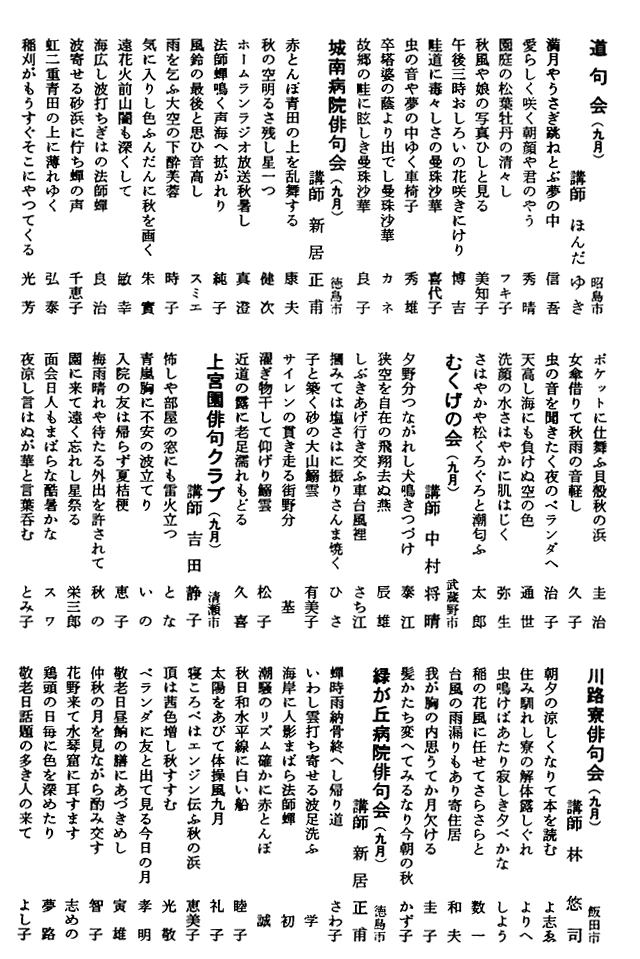 道句会（九月）
昭島市
講師 ほんだ ゆき
満月やうさぎ跳ねとぶ夢の中 信吾
愛らしく咲く朝顔や君のやう 秀晴
園庭の松葉牡丹の清々し フキ子
秋風や娘の写真ひしと見る 美知子
午後三時おしろいの花咲きにけり 博吉
畦道に毒々しさの曼珠沙華 喜代子
虫の音や夢の中ゆく車椅子 秀雄
卒塔婆の蔭より出でし曼珠沙華 カネ
故郷の畦に眩しき曼珠沙華 良子
城南病院俳句会（九月）
徳島市
講師 新居 正甫
赤とんぼ青田の上を乱舞する 康夫
秋の空明るさ残し星一つ 健次
ホームランラジオ放送秋暑し 真澄
法師蟬鳴く声海へ拡がれり 純子
風鈴の最後と思ひ音高し スミエ
雨を乞ふ大空の下酔芙蓉 時子
気に入りし色ふんだんに秋を画く 朱實
遠花火前山闇も深くして 敏幸
海広し波打ちぎはの法師蟬 良治
波寄せる砂浜に佇ち蟬の声 千恵子
虹二重青田の上に薄れゆく 弘泰
稲刈がもうすぐそこにやつてくる 光芳
ポケットに仕舞ふ貝殻秋の浜 圭治
女傘借りて秋雨の音軽し 久子
虫の音を聞きたく夜のベランダへ 治子
天高し海にも負けぬ空の色 通世
洗顔の水さはやかに肌はじく 弥生
さはやかや松くろぐろと潮匂ふ 太郎
むくげの会（九月）
武蔵野市
講師 中村 将晴
夕野分つながれし犬鳴きつづけ 泰江
狭空を自在の飛翔去ぬ燕 辰雄
しぶきあげ行き交ふ車台風裡 さち江
摑みては塩さはに振りさんま焼く ひさ
子と築く砂の大山鰯雲 有美子
サイレンの貫き走る街野分 基
濯ぎ物干して仰げり鰯雲 松子
近道の露に老足濡れもどる 久喜
上宮園俳句クラブ（九月）
清瀬市
講師 吉田 静子
怖しや部屋の窓にも雷火立つ とな
青嵐胸に不安の波立てり いの
入院の友は帰らず夏桔梗 恵子
梅雨晴れや待たる外出を許されて 秋の
園に来て遠く忘れし星祭る 栄三郎
面会日人もまばらな酷暑かな スワ
夜涼し言はぬが華と言葉呑む とみ子
川路寮俳句会（九月）
飯田市
講師 林 悠司
朝夕の涼しくなりて本を読む よ志ゑ
住み馴れし寮の解体露しぐれ よりへ
虫鳴けばあたり寂しき夕べかな しよう
稲の花風に任せてさらさらと 数一
台風の雨漏りもあり寄住居 和夫
我が胸の内思うてか月欠ける 圭子
髪かたち変へてみるなり今朝の秋 かず子
緑が丘病院俳句会（九月）
徳島市
講師 新居 正甫
蟬時雨納骨終へし帰り道 さわ子
いわし雲打ち寄せる波足洗ふ 学
海岸に人影まばら法師蟬 初
潮騒のリズム確かに赤とんぼ 誠
秋日和水平線に白い船 睦子
太陽をあびて体操風九月 礼子
寝ころべばエンジン伝ふ秋の浜 恵美子
頂は茜色増し秋すすむ 光敬
ベランダに友と出て見る今日の月 孝明
敬老日昼餉の膳にあづきめし 寅雄
仲秋の月を見ながら酌み交す 智子
花野来て水琴窟に耳すます 志めの
鶏頭の日毎に色を深めたり 夢路
敬老日話題の多き人の来て よし子